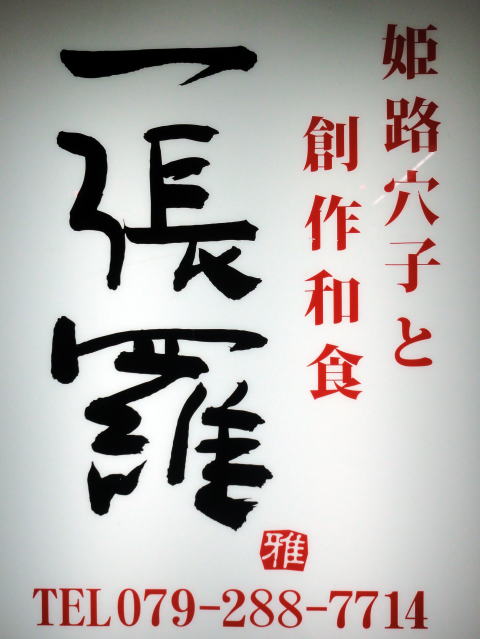 姫路穴子と
創作和食
一張羅
雅
TEL079-288-7714